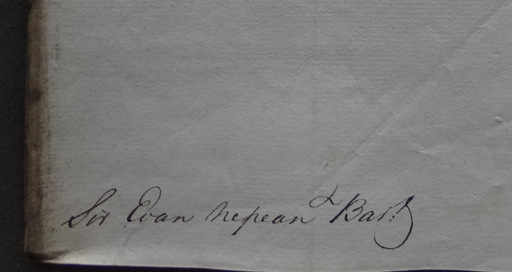 Sir Evan Nepean Bar.t